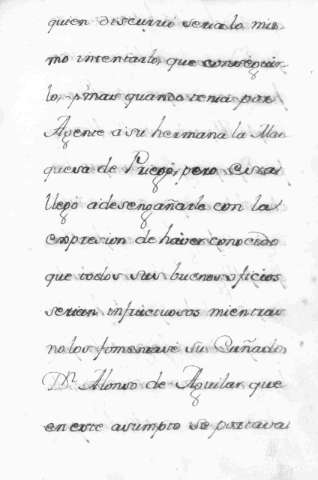 quien discurrió seria lo mis
mo intentarlo, que conseguir
lo, y mas quando tenia por
Agente a su hermana la Mar
quesa de Priego, pero essa
llegó a desengañarle con la
expresion de haver conocido
que todos sus buenos oficios
serian infructuosos mientras
no los fomentase su Cuñado,
Dn. Alonso de Aguilar que
en este asumpto se portava